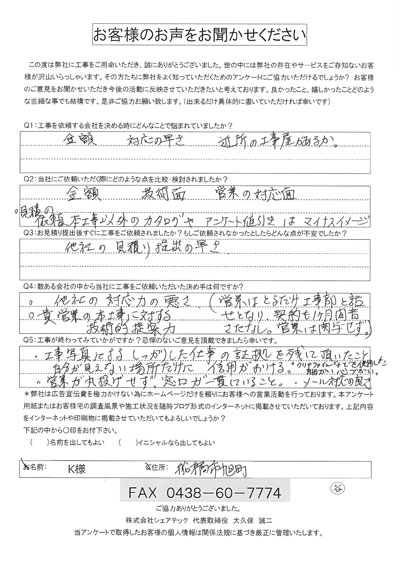 お客様のお声をお聞かせください
この度は弊社に工事をご用命いただき、誠にありがとうございました。世の中には弊社の存在やサービスをご存知ないお客
様が沢山いらっしゃいます。その方たちに弊社をよく知っていただくためのアンケートにご協力いただけるでしょうか? お客様
のご意見をお聞かせいただき今後の活動に反映させていただきたいと考えております。良かったこと、嬉しかったことどのよう
な些細な事でも結構です。是非ご協力お願い致します。(出来るだけ具体的に書いていただければ幸いです)
Q1:工事を依頼する会社を決める時にどんなことで悩まれていましたか?
金額 対応の早さ 近所の工事屋があるか。
Q2:当社にご依頼いただく際にどのような点を比較・検討されましたか?
金額 技術面 営業の対応面
見積の
依頼本工事以外のカタログやアンケート値引きはマイナスイメージ
Q3:お見積り提出後すぐに工事をご依頼されましたか?もしご依頼されなかったとしたらどんな点が不安でしたか?
他社の見積り提出の早さ
Q4:数ある会社の中から当社に工事をご依頼いただいた決め手は何ですか?
他社の対応力の悪さ
営業の本工事に対する
技術的提案力
営業は肉手です。)
Q5:工事が終わってみていかがですか?忌憚のないご意見を頂戴できましたら幸いです。
・工事写真による しっかりした仕事の証拠を残して頂いたこと
自分が見えない場所だけに 信用がおける。
・営業が丸投げせず 窓口が一貫していること。 ・メール対応の良さ
*弊社は広告宣伝費を極力かけない為にホームページだけを頼りにお客様への営業活動を行っております。本アンケート
用紙またはお客様宅の調査風景や施工状況を随時ブログ形式のインターネットに掲載させていただいております。上記内容
をインターネットや印刷物に掲載させていただいてもよろしいでしょうか?
下記の中から○印をお付け下さい。
( )名前を出してもよい ( )イニシャルなら出してもよい
お名前: K様 ご住所:
FAX 0438-60-7774
谷
ご協力ありがとうございました。
株式会社シェアテック 代表取締役 大久保 誠二
当アンケートで取得したお客様の個人情報は関係法規に基づき厳正に管理いたします。